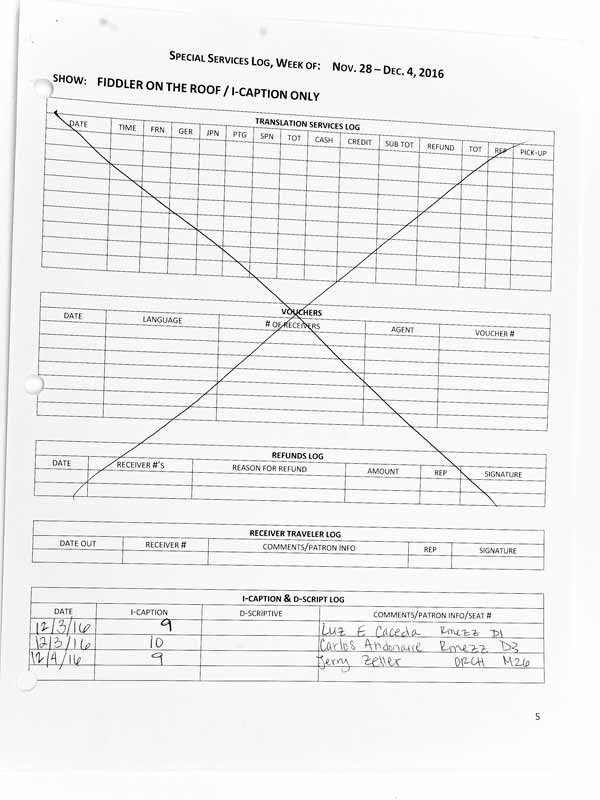 SPECIAL SERVICES LOG, WEEK OF: NOV. 28 – DEC. 4, 2016
SHOW: FIDDLER ON THE ROOF / I-CAPTION ONLY
TRANSLATION SERVICES LOG
DATE TIME FRN GER JPN PTG SPN TOT CASH CREDIT SUB TOT REFUND TOT REP PICK-UP
VOUCHERS
DATE LANGUAGE # OF RECEIVERS AGENT VOUCHER #
REFUNDS LOG
DATE RECEIVER #'S REASON FOR REFUND AMOUNT REP SIGNATURE
RECEIVER TRAVELER LOG
DATE OUT RECEIVER # COMMENTS/PATRON INFO REP SIGNATURE
I-CAPTION & D-SCRIPT LOG
DATE I-CAPTION D-SCRIPTIVE COMMENTS/PATRON INFO/SEAT #
12/3/16 9 Luz E Caceda Rmezz D1
12/3/16 10 Carlos Andonaire Rmezz D3
12/4/16 9 Jerry Zeller ORCH M26
5